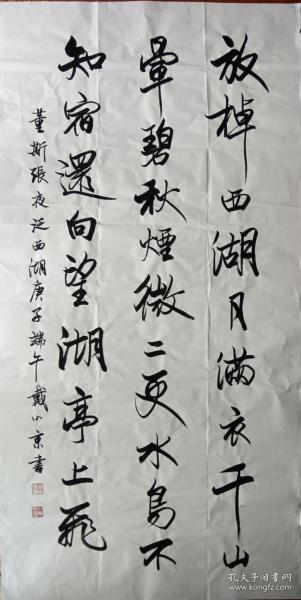 放棹西湖月满衣千山
晕碧秋烟微二更水鸟不
知宿還向望湖亭上飛
董斯張夜泛西湖庚子端午戴小京書
孔夫子旧书网